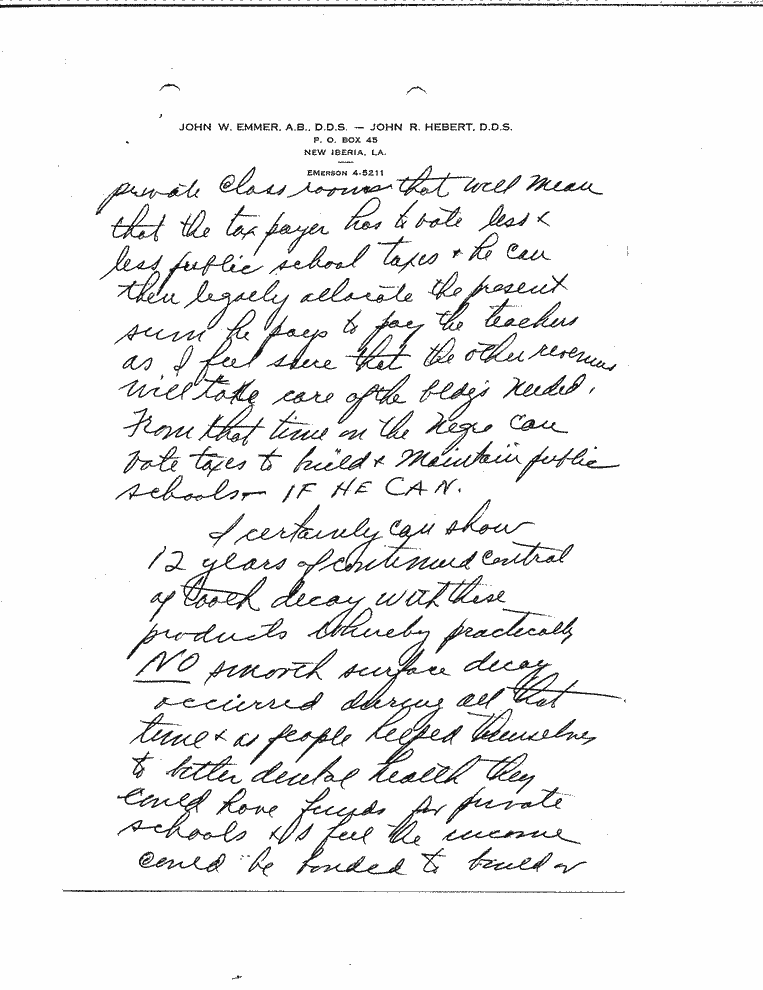 JOHN W. EMMER, A.B., D.D.S. — JOHN R. HEBERT, D.D.S.
P. O. BOX 45
NEW IBERIA, LA.
EMERSON 4-5211
private class rooms that will mean
that the tax payer has to vote less &
less public school taxes & he can
then legally allocate the present
sum he pays to pay the teachers
as I feel sure that the other revenues
will take care of the bldgs needed.
From that time on the Negro can
vote taxes to build & maintain public
schools — IF HE CAN.
I certainly can show
12 years of continued control
of tooth decay with these
products whereby practically
NO smooth surface decay
occurred during all that
time & as people helped themselves
to better dental health they
could have funds for private
schools & I feel the income
could be bonded to build or